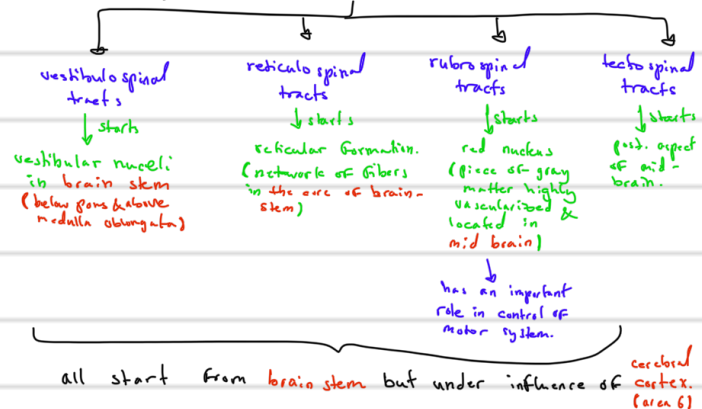 vestibulospinal
tracts
starts
vestibular nuceli
in brain stem
(below pons & above
medulla oblongata)
reticulospinal
tracts
starts
reticular formation.
(network of fibers
in the core of brain-
stem)
rubrospinal
tracts
starts
red nucleus
(piece of gray
matter highly
vascularized &
located in
mid brain)
has an important
role in control of
motor system.
tectospinal
tracts
starts
post. aspect
of mid-
brain.
all start from brain stem but under influence of cerebral
cortex.
(area 6)